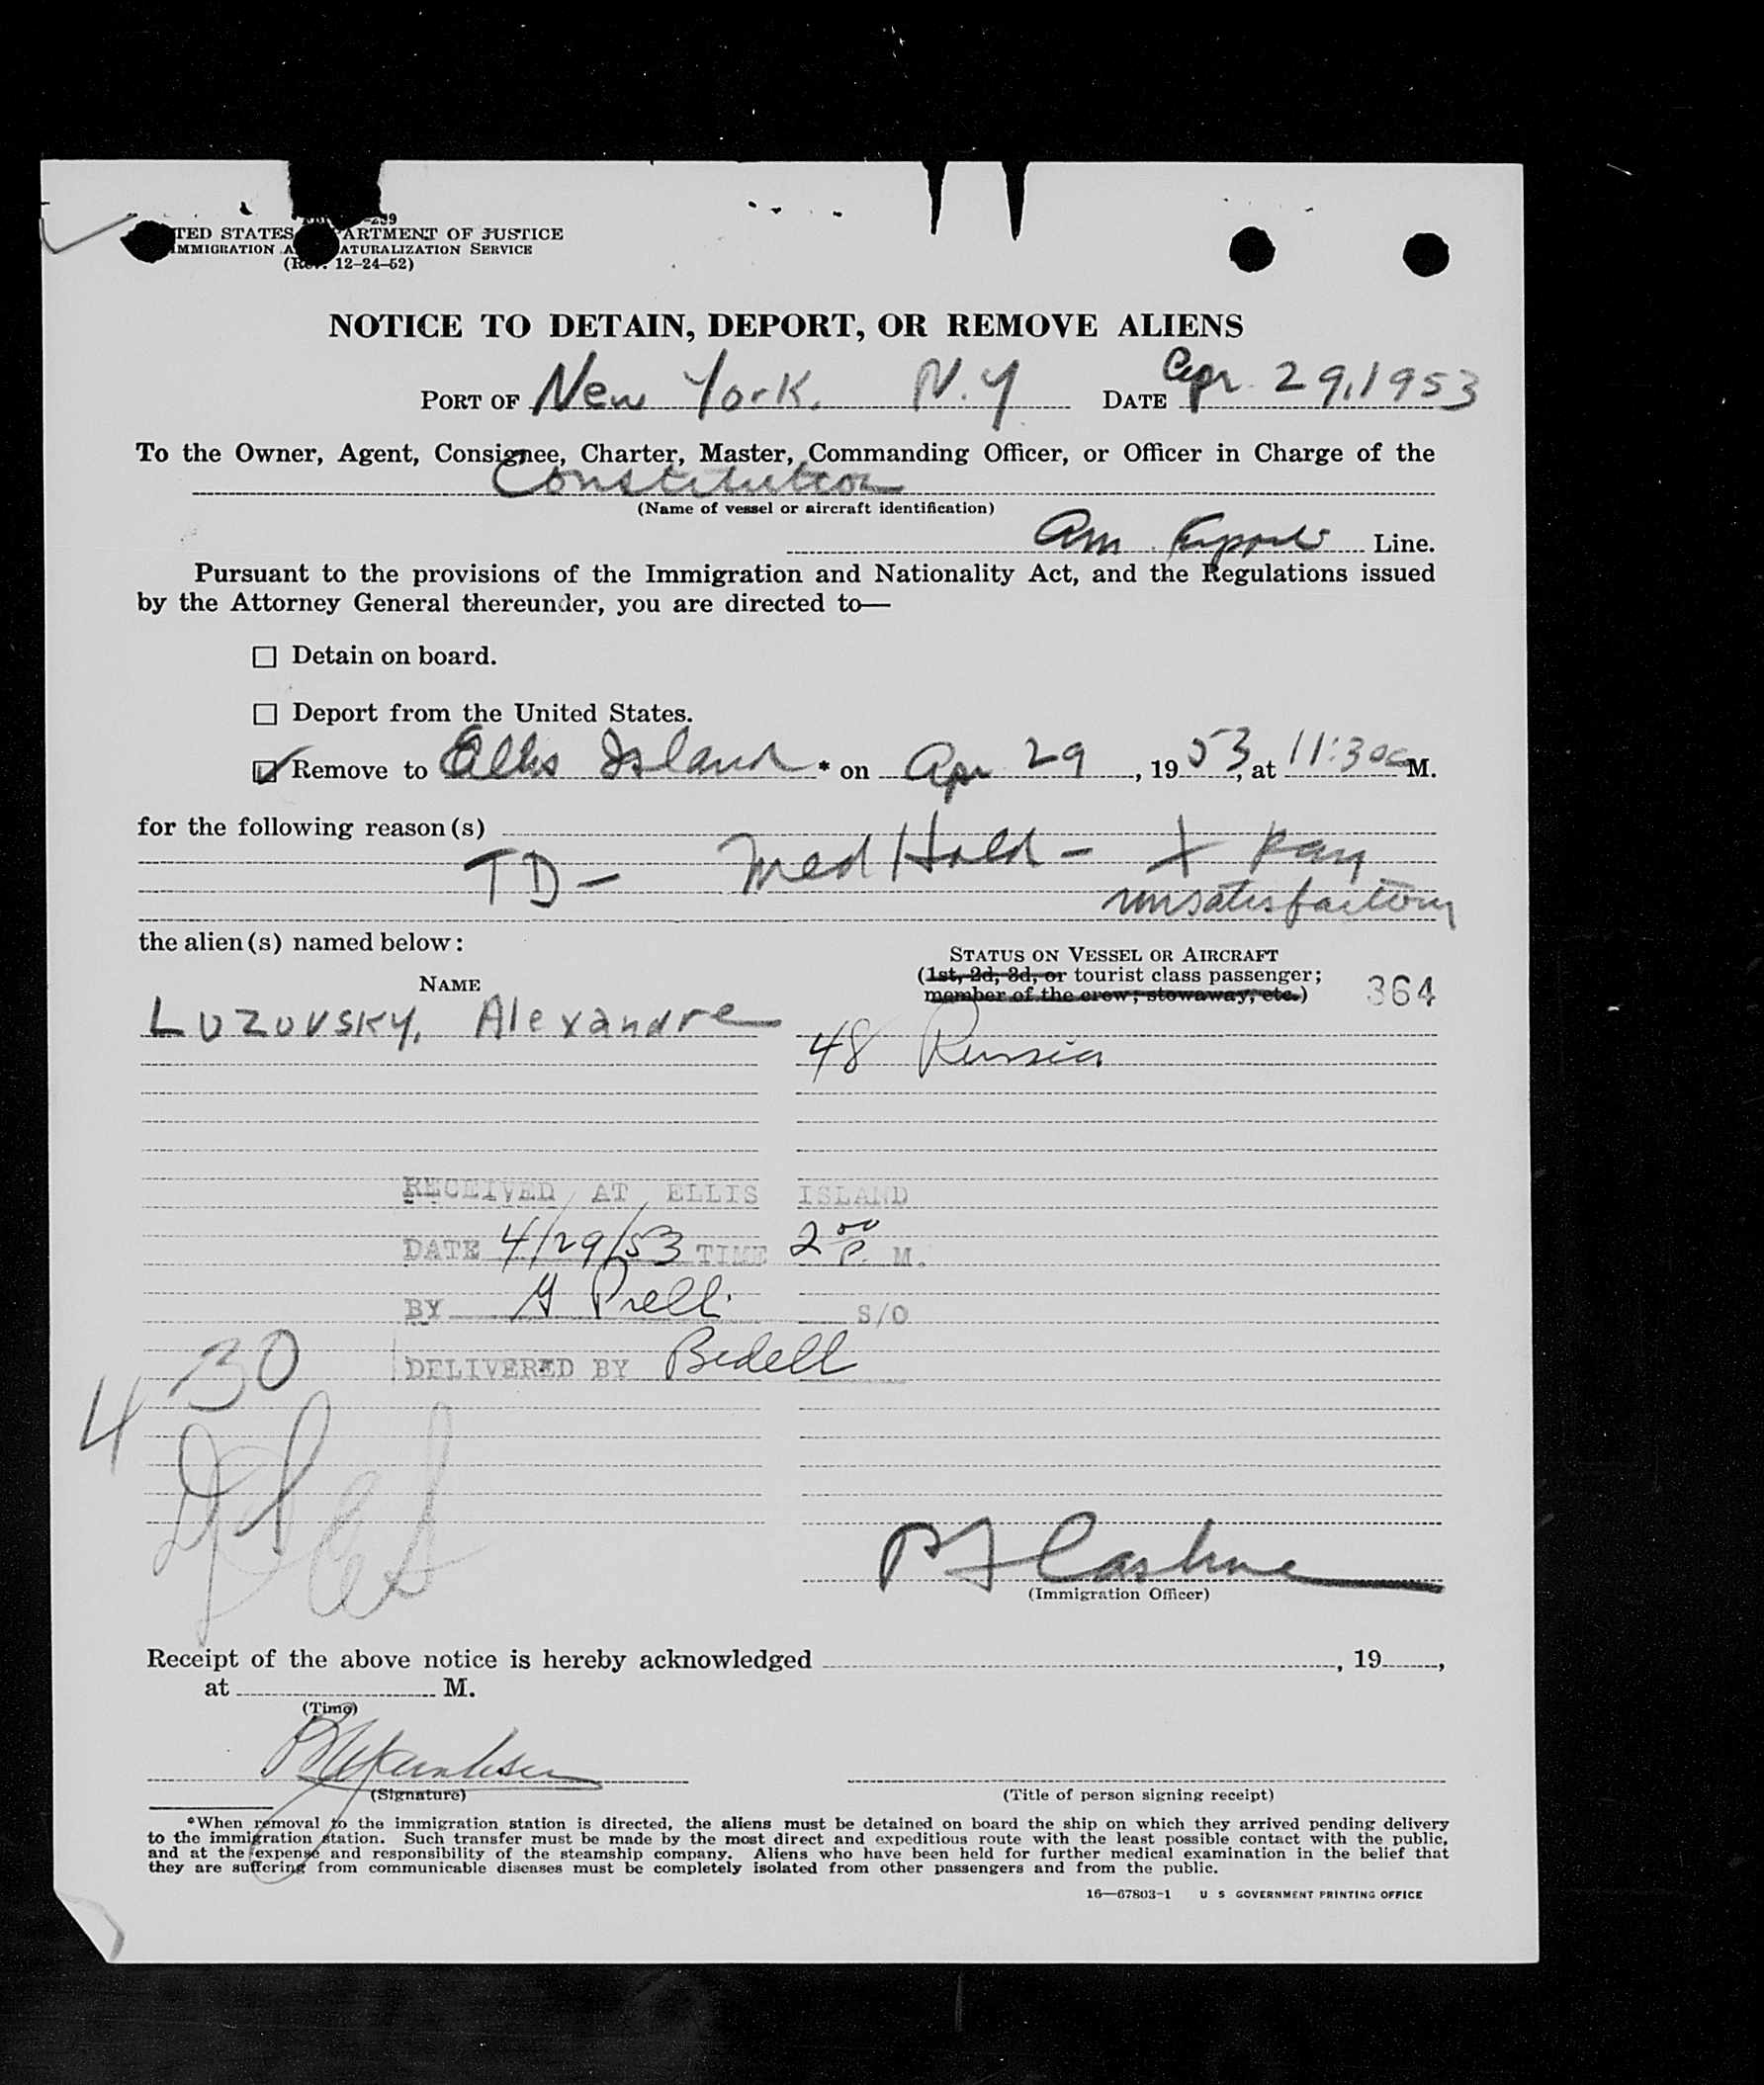 -259
TED STATES ARTMENT OF JUSTICE
MMIGRATION A ATURALIZATION SERVICE
(Rev. 12-24-52)
NOTICE TO DETAIN, DEPORT, OR REMOVE ALIENS
PORT OF New York, N.Y DATE Apr 29, 1953
To the Owner, Agent, Consignee, Charter, Master, Commanding Officer, or Officer in Charge of the
Constitution
(Name of vessel or aircraft identification)
Am Export Line.
Pursuant to the provisions of the Immigration and Nationality Act, and the Regulations issued
by the Attorney General thereunder, you are directed to—
☐ Detain on board.
☐ Deport from the United States.
☑ Remove to Ellis Island * on Apr 29, 1953, at 11:30a M.
for the following reason(s)
TD - Med Hold - X Ray
unsatisfactory
the alien(s) named below:
STATUS ON VESSEL OR AIRCRAFT
(1st, 2d, 3d, or tourist class passenger;
member of the crew; stowaway, etc.)
364
NAME
LUZOVSKY, Alexandre
48 Russia
RECEIVED AT ELLIS ISLAND
DATE 4/29/53 TIME 2 00 P. M.
BY G Prelli S/O
DELIVERED BY Bedell
4 30
(Immigration Officer)
Receipt of the above notice is hereby acknowledged , 19 ,
at M.
(Time)
(Signature)
(Title of person signing receipt)
*When removal to the immigration station is directed, the aliens must be detained on board the ship on which they arrived pending delivery
to the immigration station. Such transfer must be made by the most direct and expeditious route with the least possible contact with the public,
and at the expense and responsibility of the steamship company. Aliens who have been held for further medical examination in the belief that
they are suffering from communicable diseases must be completely isolated from other passengers and from the public.
16—67803-1 U S GOVERNMENT PRINTING OFFICE